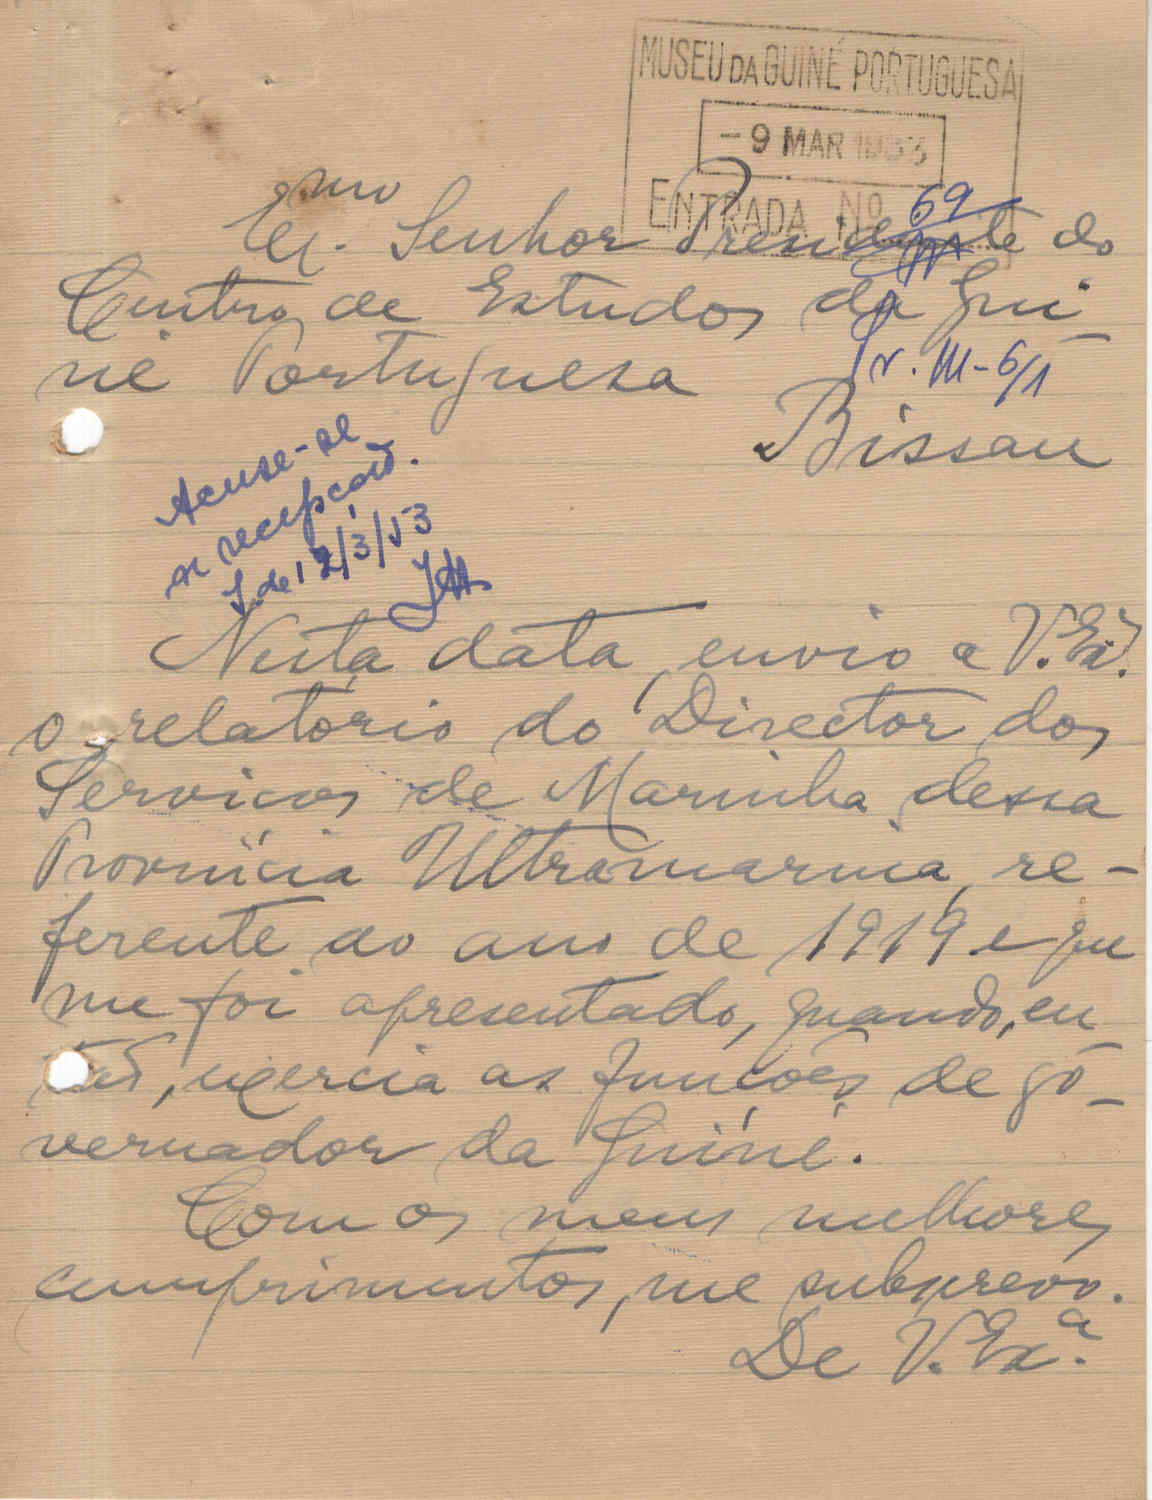 MUSEU DA GUINÉ PORTUGUESA
-9 MAR 1953
ENTRADA Nº 69
Exmo. Senhor Presidente do
Centro de Estudos da Gui-
né Portuguesa
Pr. III-6/1
Bissau
Acuse-se
a recepção.
12/3/53
Nesta data envio a V. Exª.
o relatório do Director dos
Serviços de Marinha dessa
Província Ultramarina, re-
ferente ao ano de 1919 e que
me foi apresentado, quando, en-
tão, exercia as funções de go-
vernador da Guiné.
Com os meus melhores
cumprimentos, me subscrevo.
De V. Exª.